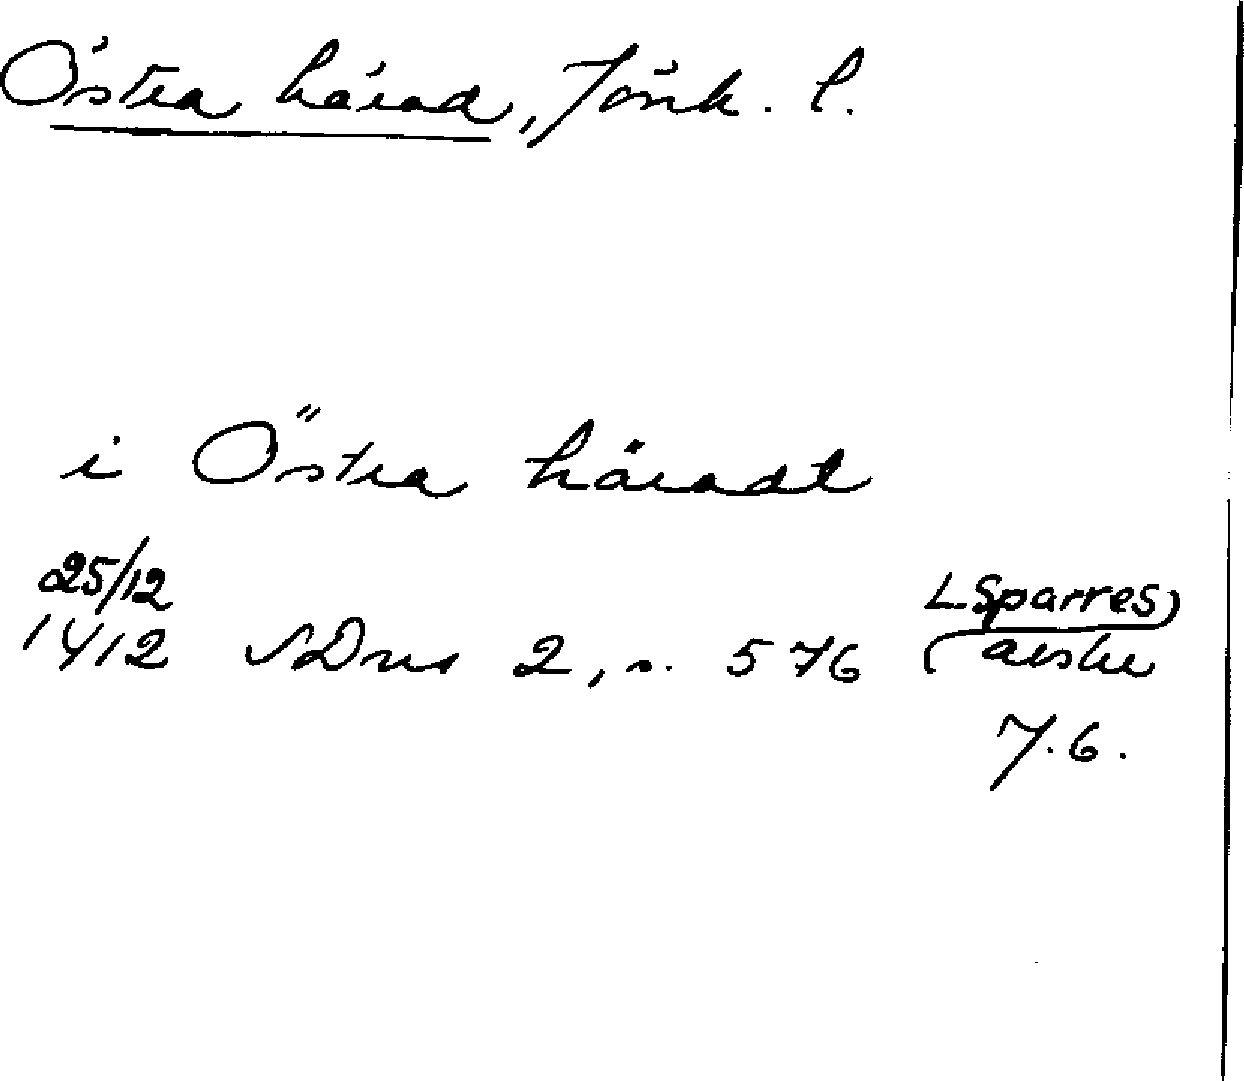 Östra härad, Jönk. l.
i Östra häradt
25/12
1412 SDns 2, s. 576 (Sparres)
avskr
7.6.